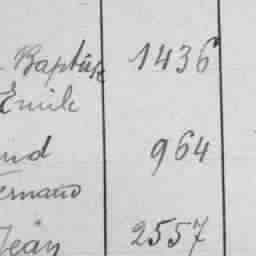 Baptiste 1436
Emile
and 964
ernand
Jean 2557